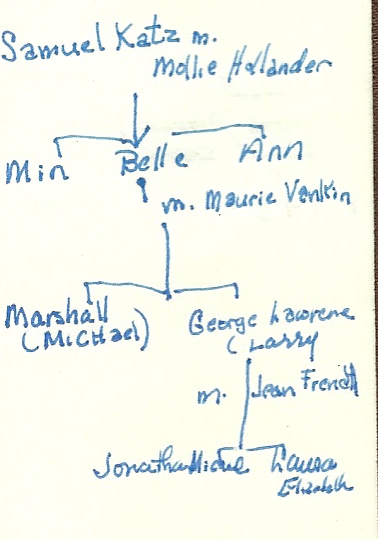 Samuel Katz m.
Mollie Hollander
Min Belle Ann
m. Maurie Venkin
Marshall George Lawrene
(Michael) (Larry
m. Jean French
Jonathan Laura
Elizabeth